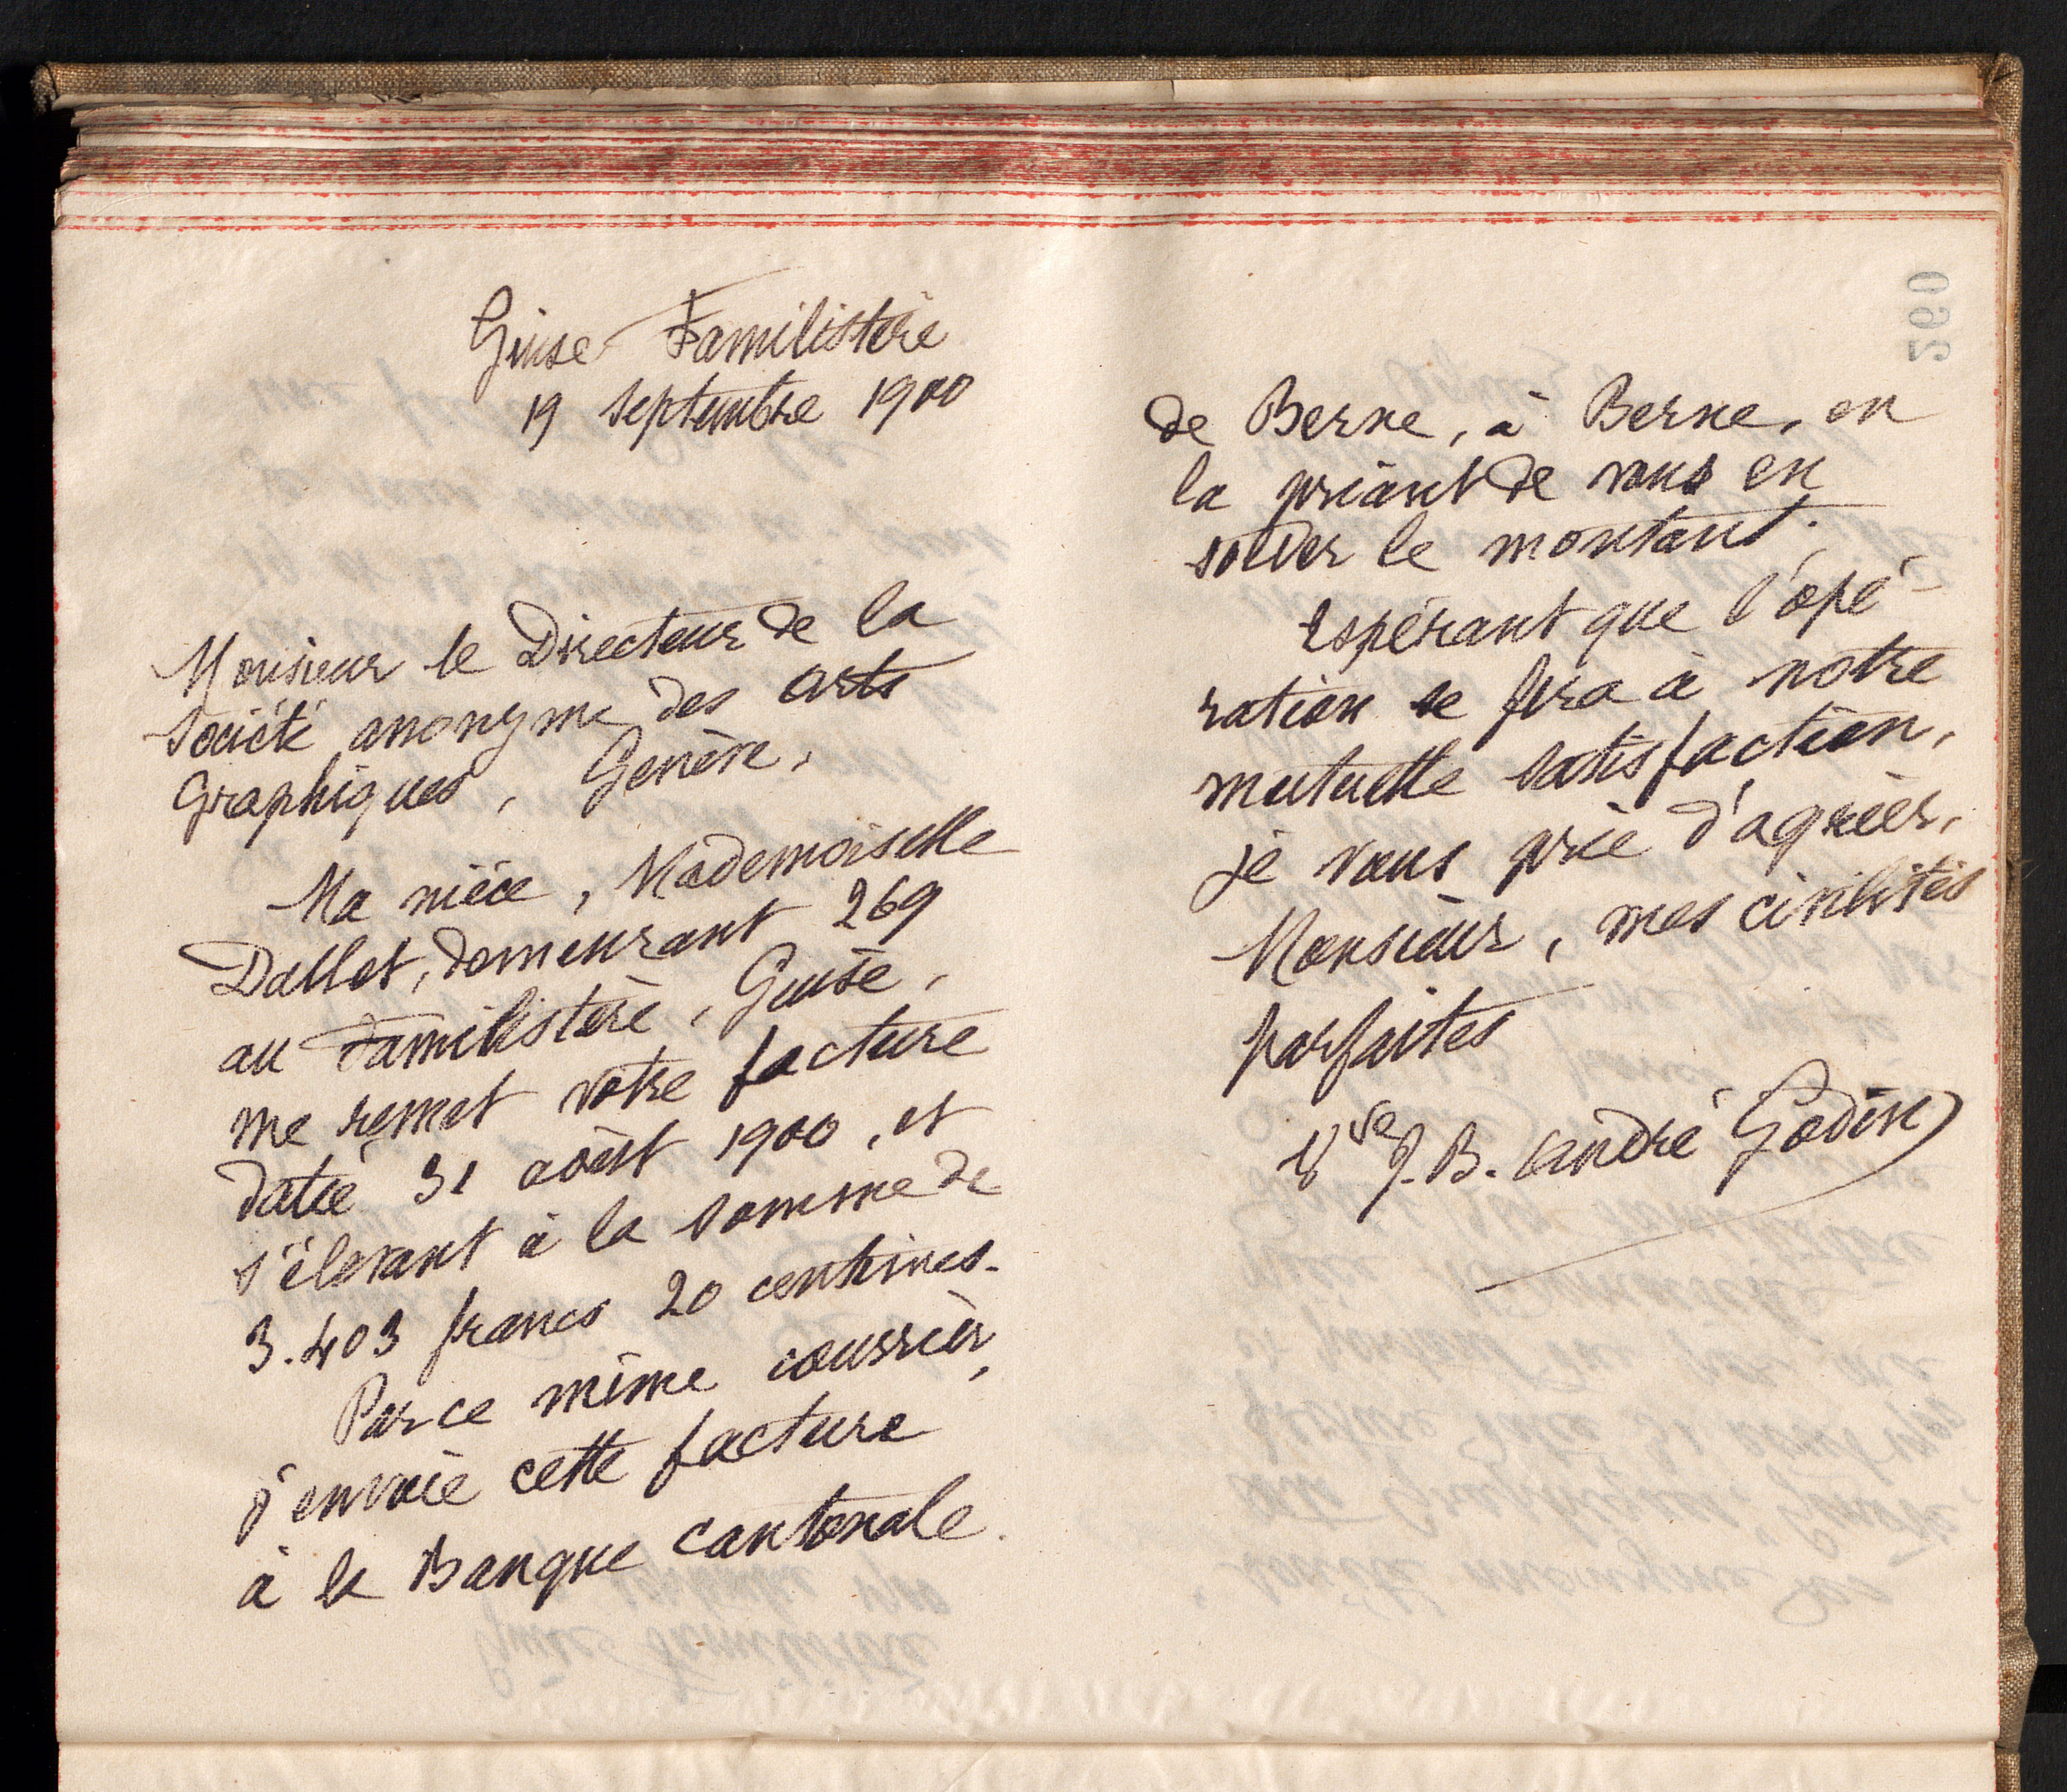 Guise Familistère
19 septembre 1900
Monsieur le Directeur de la
Société anonyme des arts
graphiques, Genève,
Ma nièce, Mademoiselle
Dallet, demeurant 269
au Familistère, Guise,
me remet votre facture
datée 31 août 1900, et
s'élevant à la somme de
3.403 francs 20 centimes.
Par ce même courrier,
j'envoie cette facture
à la Banque cantonale
260
de Berne, à Berne, en
la priant de vous en
solder le montant.
Espérant que l'opé-
ration se fera à notre
mutuelle satisfaction,
je vous prie d'agréer,
Monsieur, mes civilités
parfaites
Vve J. B. André Godin